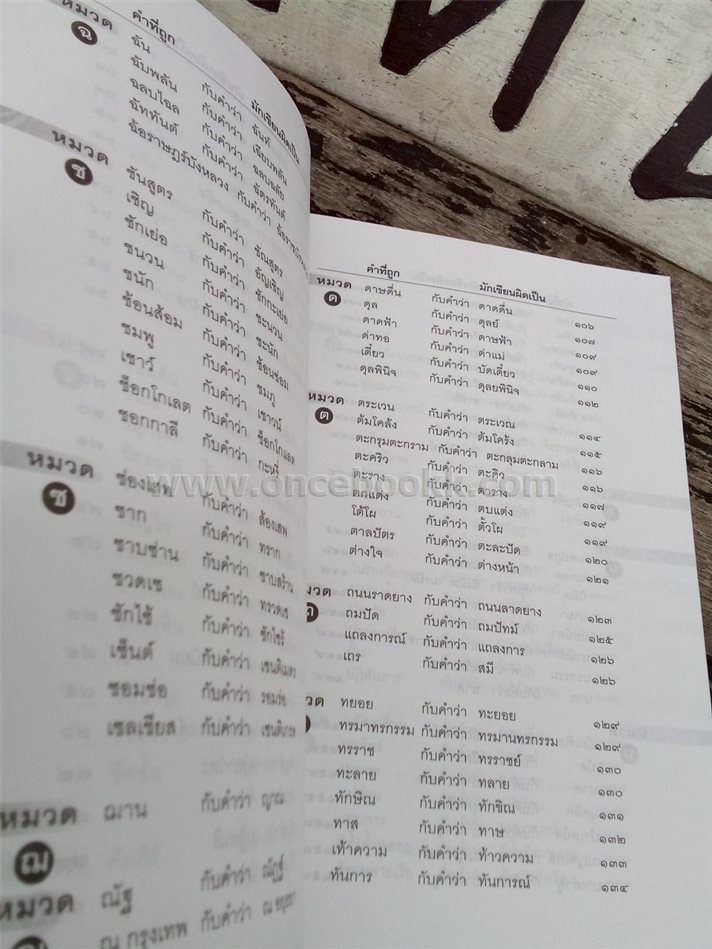 คำที่ถูก มักเขียนผิดเป็น
หมวด ฉ ฉัน กับคำว่า ฉันท์
ฉับพลัน กับคำว่า เฉียบพลัน
ฉลบไฉล กับคำว่า
ฉัททันต์ กับคำว่า ฉัตรทันต์
ฉ้อราษฎร์บังหลวง กับคำว่า
หมวด ช ชันสูตร กับคำว่า ชัณสูตร
เชิญ กับคำว่า อัญเชิญ
ชักเย่อ กับคำว่า ชักกะเย่อ
ชนวน กับคำว่า ชะนวน
ชนัก กับคำว่า ชะนัก
ช้อนส้อม กับคำว่า ช้อนซ่อม
ชมพู กับคำว่า ชมภู
เชาว์ กับคำว่า เชาวน์
ช็อกโกเลต กับคำว่า ช็อกโกแลต
ชอกกาลี กับคำว่า กะหรี่
หมวด ซ ซ่องเสพ กับคำว่า ส้องเสพ
ซาก กับคำว่า ทราก
ซาบซ่าน กับคำว่า ซาบสร้าน
ซวดเซ กับคำว่า ทรวดเซ
ซักไซ้ กับคำว่า ซักไซร้
เซ็นต์ กับคำว่า เซนติเมตร
ซอมซ่อ กับคำว่า ซอมร่อ
เซลเซียส กับคำว่า เซนติเกรด
หมวด ฌ ฌาน กับคำว่า ญาณ
หมวด ณัฐ กับคำว่า ณัฏฐ์
ณ กรุงเทพ กับคำว่า ณ อยุธยา
คำที่ถูก มักเขียนผิดเป็น
หมวด ด ดาษดื่น กับคำว่า ดาดดื่น ๑๐๖
ดุล กับคำว่า ดุลย์ ๑๐๗
ดาดฟ้า กับคำว่า ดาษฟ้า ๑๐๙
ด่าทอ กับคำว่า ด่าแม่ ๑๐๙
เดี่ยว กับคำว่า บัดเดี่ยว ๑๑๐
ดุลพินิจ กับคำว่า ดุลยพินิจ ๑๑๒
หมวด ต ตระเวน กับคำว่า ตระเวณ ๑๑๔
ต้มโคล้ง กับคำว่า ต้มโคร้ง ๑๑๕
ตะกรุมตะกราม กับคำว่า ตะกลุมตะกลาม ๑๑๖
ตะคริว กับคำว่า ตะคิว ๑๑๖
ตะราง กับคำว่า ตาราง ๑๑๗
ตกแต่ง กับคำว่า ตบแต่ง ๑๑๙
โต้โผ กับคำว่า ตั้วโผ ๑๑๙
ตาลปัตร กับคำว่า ตะละปัด ๑๒๐
ต่างใจ กับคำว่า ต่างหน้า ๑๒๑
หมวด ถ ถนนราดยาง กับคำว่า ถนนลาดยาง ๑๒๓
ถมปัด กับคำว่า ถมปัทม์ ๑๒๕
แถลงการณ์ กับคำว่า แถลงการ ๑๒๖
เถร กับคำว่า สมี ๑๒๖
หมวด ทยอย กับคำว่า ทะยอย ๑๒๙
ทรมาทรกรรม กับคำว่า ทรมานทรกรรม ๑๒๙
ทรราช กับคำว่า ทรราชย์ ๑๓๐
ทะลาย กับคำว่า ทลาย ๑๓๐
ทักษิณ กับคำว่า ทักขิณ ๑๓๑
ทาส กับคำว่า ทาษ ๑๓๒
เท้าความ กับคำว่า ท้าวความ ๑๓๓
ทันการ กับคำว่า ทันการณ์ ๑๓๔
www.oncebookk.com